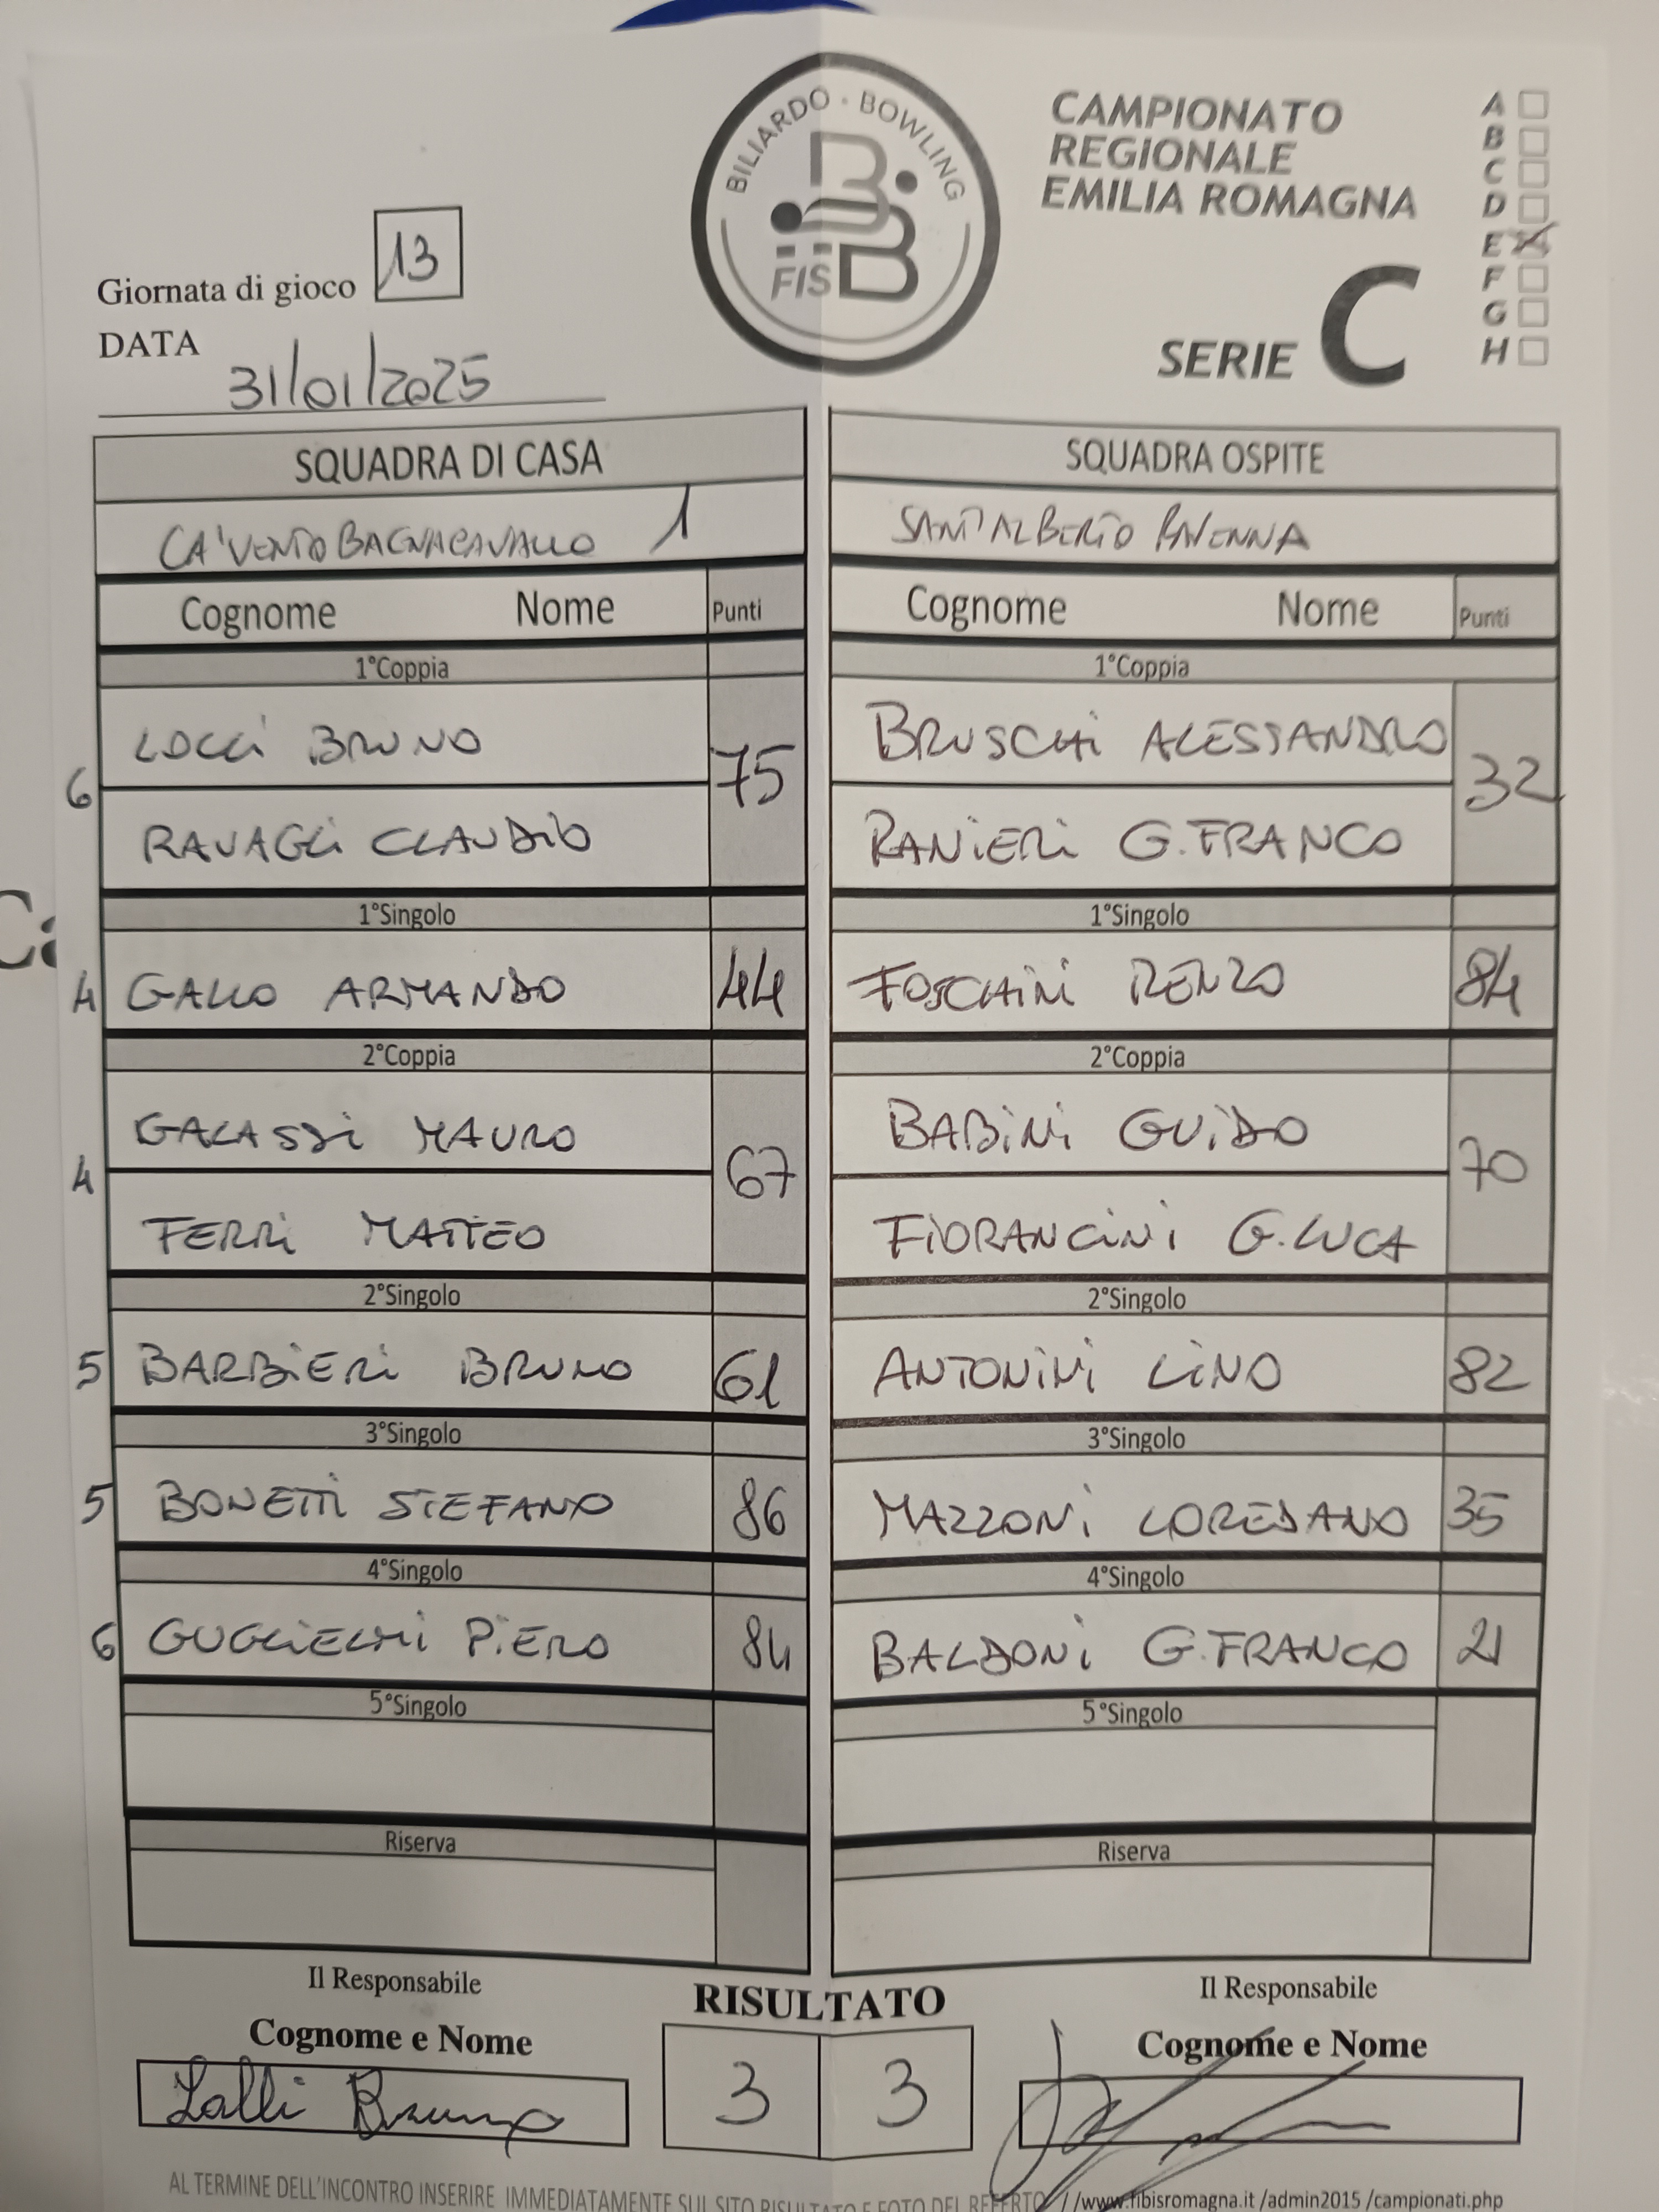 BILIARDO · BOWLING
FISBB
CAMPIONATO
REGIONALE
EMILIA ROMAGNA
SERIE C
A
B
C
D
E X
F
G
H
Giornata di gioco 13
DATA 31/01/2025
SQUADRA DI CASA SQUADRA OSPITE
CA'VENTO BAGNACAVALLO 1 SANT'ALBERTO RAVENNA
Cognome Nome Punti Cognome Nome Punti
1°Coppia 1°Coppia
LOCCi BRUNO BRUSCHi ALESSANDRO
6 75 32
RAVAGLi CLAUDiO RANiERi G.FRANCO
1°Singolo 1°Singolo
4 GALLO ARMANDO 44 FOSCHiNi RENZO 84
2°Coppia 2°Coppia
GALASSi MAURO BABiNi GUiDO
4 67 70
FERRi MATTEO FiORANCiNi G.LUCA
2°Singolo 2°Singolo
5 BARBiERi BRUNO 61 ANTONiNi LiNO 82
3°Singolo 3°Singolo
5 BONETTi STEFANO 86 MAZZONi LOREDANO 35
4°Singolo 4°Singolo
6 GUGLiELMi PiERO 84 BALDONi G.FRANCO 21
5°Singolo 5°Singolo
Riserva Riserva
Il Responsabile Il Responsabile
RISULTATO
Cognome e Nome Cognome e Nome
Lolli Bruno 3 3
AL TERMINE DELL'INCONTRO INSERIRE IMMEDIATAMENTE SUL SITO RISULTATO E FOTO DEL REFERTO //www.fibisromagna.it /admin2015 /campionati.php
Ca